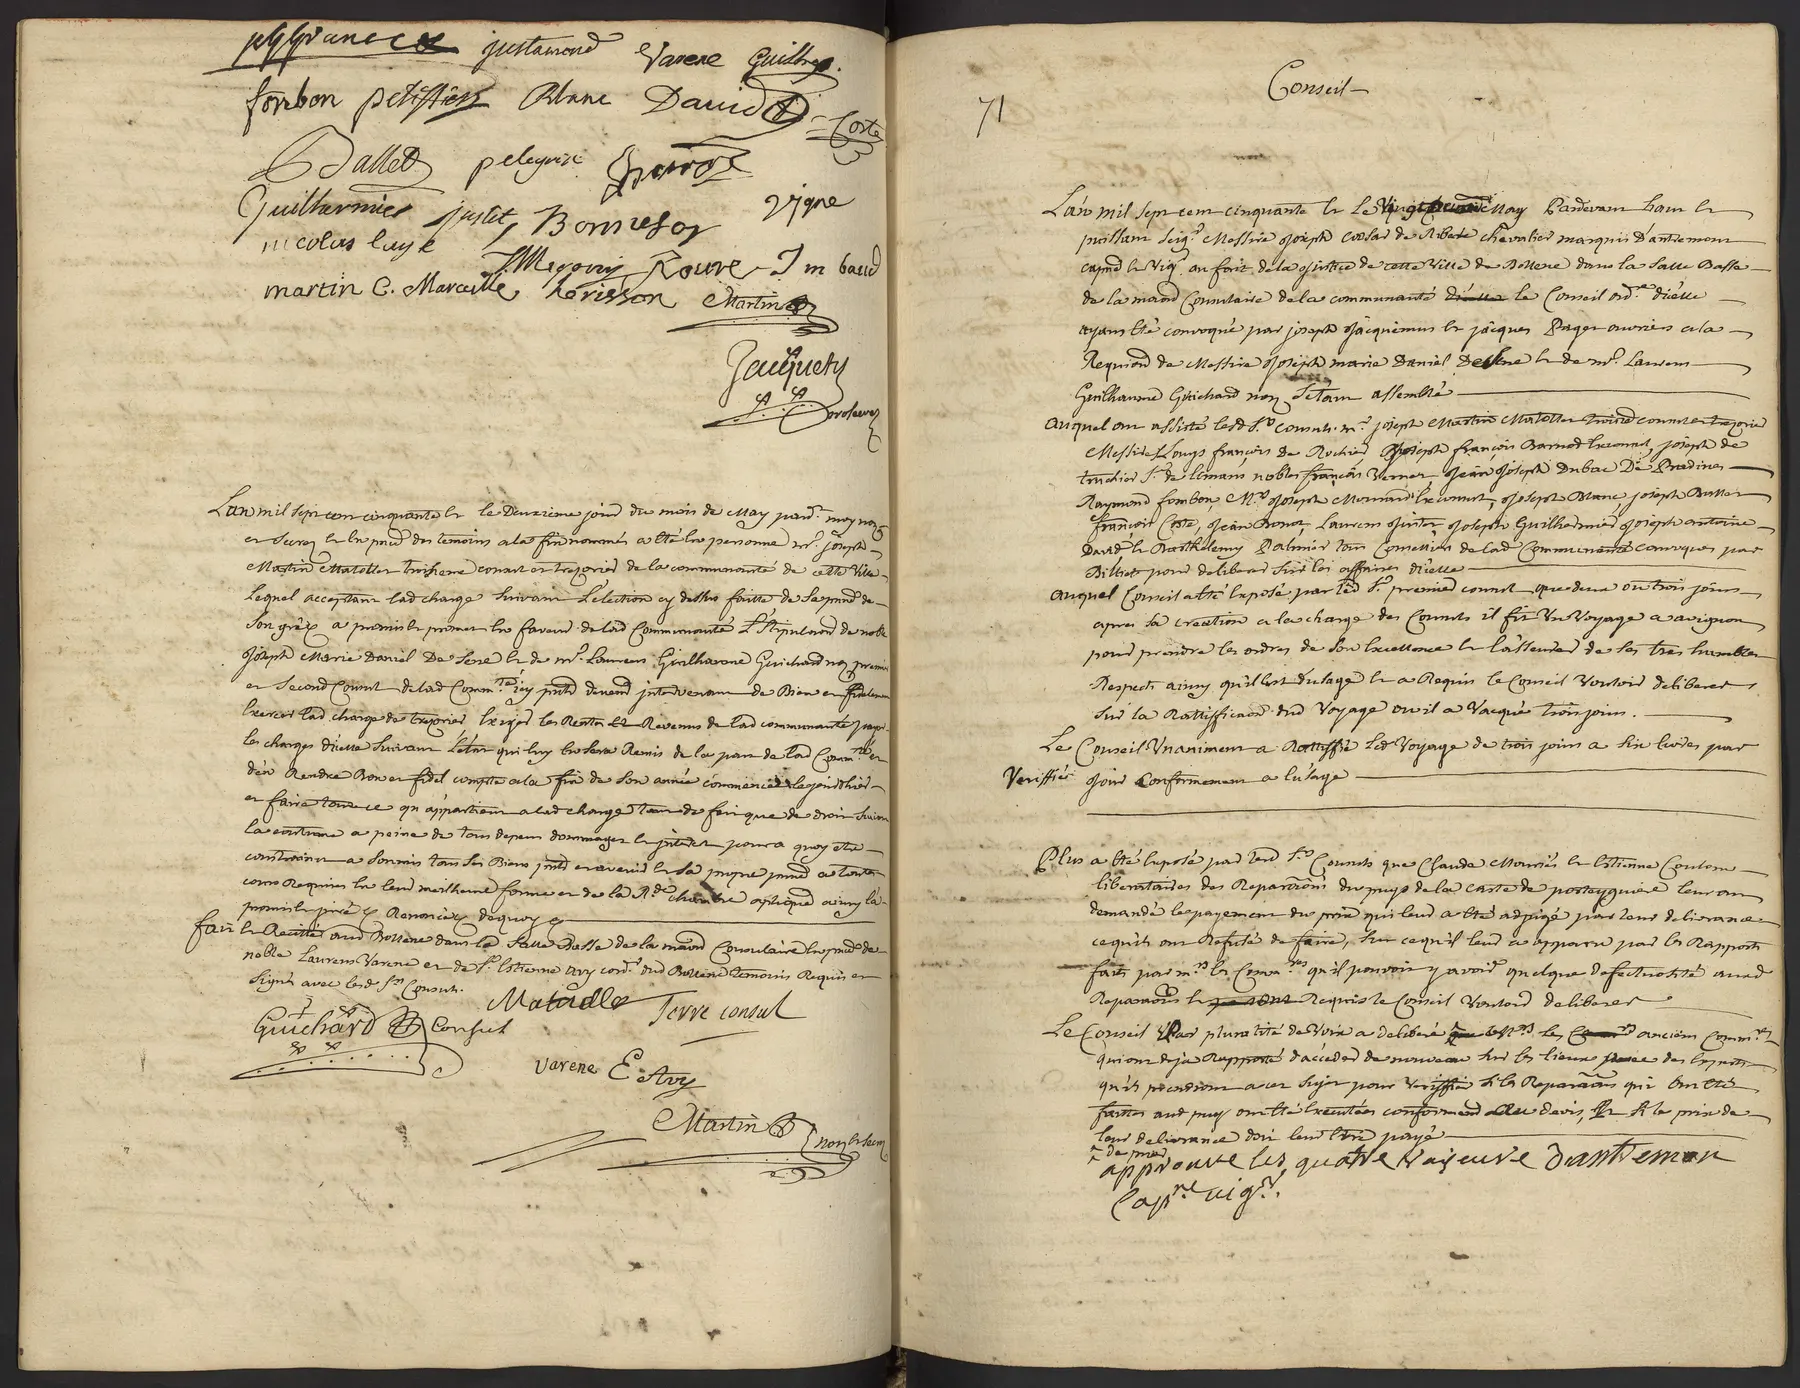 justamond Varene Guilhen.
fombon pelissier Blanc David Coste
Ballet pelegrin
Guilhermier justet, Bonnefoy vigne
nicolas luye
martin C. Marceille herisson Rouve J m baud
Martin
Jacquety
L'an mil sept cent cinquante et le Deuxieme jour du mois de May pard.t moy no.re
et secre.re et en pnce des temoins a la fin nommés a été en personne mr. joseph
Martin Matottet troisieme consul et trezorier de la communauté de cette Ville
Lequel acceptant lad charge suivant l'élection cy dessus faitte de sa pnne de
son gré a promis et promet en faveur de lad Communauté l'stipulaõn de noble
joseph Marie Daniel De Serre et de mr. Laurens Guilheaume Guichard no.re premier
et second Consul de lad Comm.té icy pnts
Exercer lad charge de trezorier Exiger les Rentes et Revenus de lad communauté payer
les charges d'icelle suivant l'état qui luy en sera Remis de la part de lad Comm.té et
d'en Rendre Bon et fidel compte a la fin de son année commencée le jourd'huy
et faire tout ce qu'appartient a lad charge
la coutume a peine de tous depens dommages et interets pour a quoy etre
contraint a soumis tous ses Biens pnts et avenir et sa propre pnne a toutes
cours Requises en leur meilheure forme et de la R.de chambre aplique ainsy l'a
promis juré & Renoncé & dequoy &
fait et Recitté aud Bollene dans la Salle Basse de la maison Consulaire en pnce de
noble Laurens Varene et de Sr. Estienne Avy cord.r dud Bollene temoins Requis et
signés avec lesd Srs Consuls.
Guichard Consul Matottet Serre consul
Varene E Avy
Martin no.re et secre
Conseil
71
L'an mil sept cent cinquante et le May Pardevant haut et
puissant Seig.r Messire joseph Cæsar de Ribere chevalier marquis d'antremont
capne et Vig.r au fait de la justice de cette Ville de Bollene dans la Salle Basse
de la maison Consulaire de la communauté d'icelle le Conseil ord.re d'icelle
ayant été convoqué par joseph jacquemus et jacques Pager ouvriers a la
Requison de Messire joseph marie Daniel De Serre et de mr. Laurens
Guilheaume Guichard no.re S'etant assemblé
auquel ont assisté lesd Srs Consuls mr. joseph Martin Matottet troisieme consul et trezorier
Messire Louys françois De Rochier, joseph françois Barnod Exconsul, joseph de
truchier Sr. de Limans nobles françois Verner, jean joseph Dubac De Pradines
Raymond fombon, Mrs joseph Mournard Exconsul, joseph Blanc, joseph Ballet
françois Coste, jean Bonot, Laurens justet, joseph Guilhermier, joseph antoine
David et Barthelemy Palmier tous Conseillers de lad Communauté convoqués par
Billiet pour deliberer sur les affaires d'icelle
auquel Conseil a été Exposé par led Sr. premier consul que deux ou trois jours
apres sa creation a la charge des Consuls il fit un Voyage a avignon
pour prendre les ordres de son Excellence et l'asseurer de ses tres humbles
Respects ainsy qu'il est d'usage et a Requis le Conseil Vouloir deliberer
sur la Rattificaõn dud Voyage ou il a Vacqué trois jours.
Le Conseil Unaniment a Rattiffié led Voyage de trois jours a six livres par
Veriffiés jour conformement a l'usage
Plus a été Exposé par lesd Srs Consuls que Claude Mouriés et Estienne Coulomb
liberataires des Reparaõns du puys de la caste de porteyguiere leur ont
demandé le payement du prix qui leur a été adjugé par leur delivrance
ce qu'ils ont Refusé de faire, sur ce qu'il leur a apparu par les Rapports
faits par mrs les Comm.res qu'il pouvoit y avoir quelque defectuosité auxd
Reparaõns et Requis le Conseil Vouloir deliberer
Le Conseil Par pluralité de Voix a deliberé les anciens Comm.res
qui ont deja Rapporté d'acceder de nouveau sur les lieux avec des Experts
qu'ils prendront a cet sujet pour Veriffier si les Reparaõns qui ont été
faittes aud puys ont été Executées conformement au devis, et si le prix de
leur delivrance doit leur etre payé
approuve les quatre rajeure d'antremon
Capne vigr.